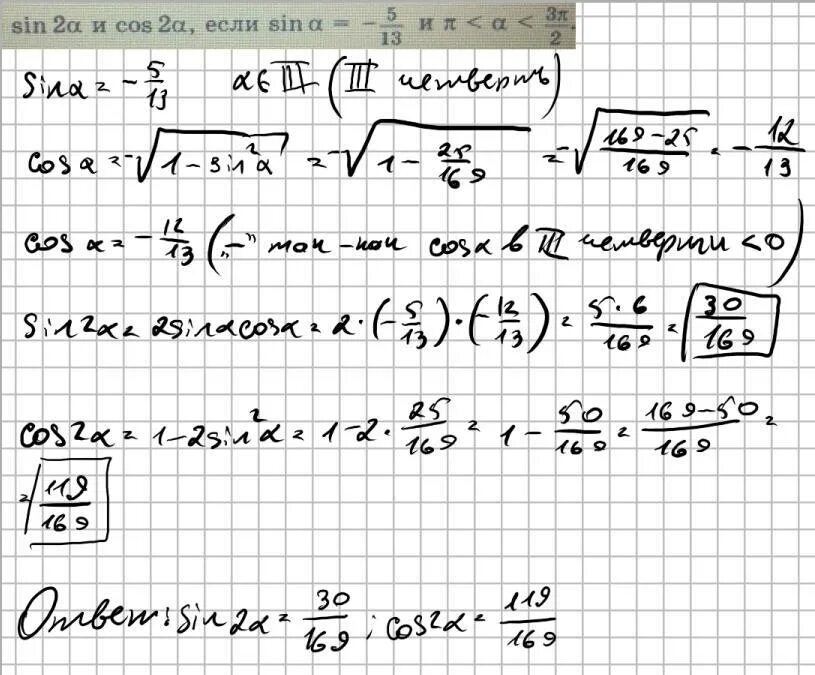 sin 2α и cos 2α, если sin α = −5/13 и π < α < 3π/2.
sinα = −5/13 α ∈ III (III четверть)
cos α = −√(1 − sin²α) = −√(1 − 25/169) = −√((169−25)/169) = −12/13
cos α = −12/13 („−" так −как cosα в III четверти <0)
sin2α = 2sinαcosα = 2·(−5/13)·(−12/13) = 5·6/169 = 30/169
cos2α = 1−2sin²α = 1−2·25/169 = 1 − 50/169 = (169−50)/169 =
= 119/169
Ответ: sin2α = 30/169 ; cos2α = 119/169